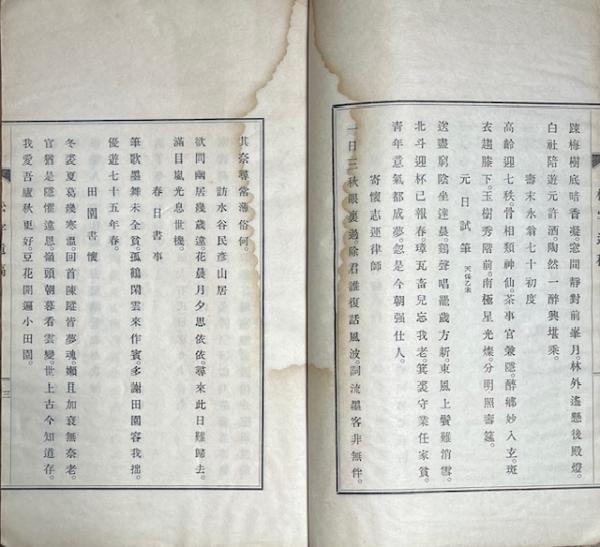 踈梅樹底暗香凝。窓間靜對前峯月。林外遙懸後殿燈。
白社陪遊元許酒。陶然一醉興堪乘。
壽末永翁七十初度
高齡迎七秩。骨相類神仙。茶事官兼隱。醉鄉妙入玄。斑
衣趨膝下。玉樹秀階前。南極星光燦。分明照壽筵。
元日試筆 天保乙未
送盡窮陰坐達晨。鷄聲唱罷歲方新。東風上鬢難消雪。
北斗迎杯已報春。瓦畜兒忘我老。箕裘守業任家貧。
青年意氣都成夢。忽是今朝强仕人。
寄懷志運律師
一日三秋眼裏過。除君誰復話風波。詞流墨客非無伴。
其奈尋常薄俗何。
訪水谷民彥山居
欲問幽居幾歲違。花晨月夕思依依。尋來此日難歸去。
滿目嵐光息世機。
春日書事
筆歌墨舞未全貧。孤鶴閑雲來作賓。多謝田園容我拙。
優遊七十五年春。
田園書懷
冬裘夏葛幾寒溫。回首陳蹤皆夢魂。嬾且加衰無奈老。
官猶是隱懼違恩。嶺頭朝暮看雲變。世上古今知道存。
我愛吾廬秋更好。豆花開遍小田園。
三